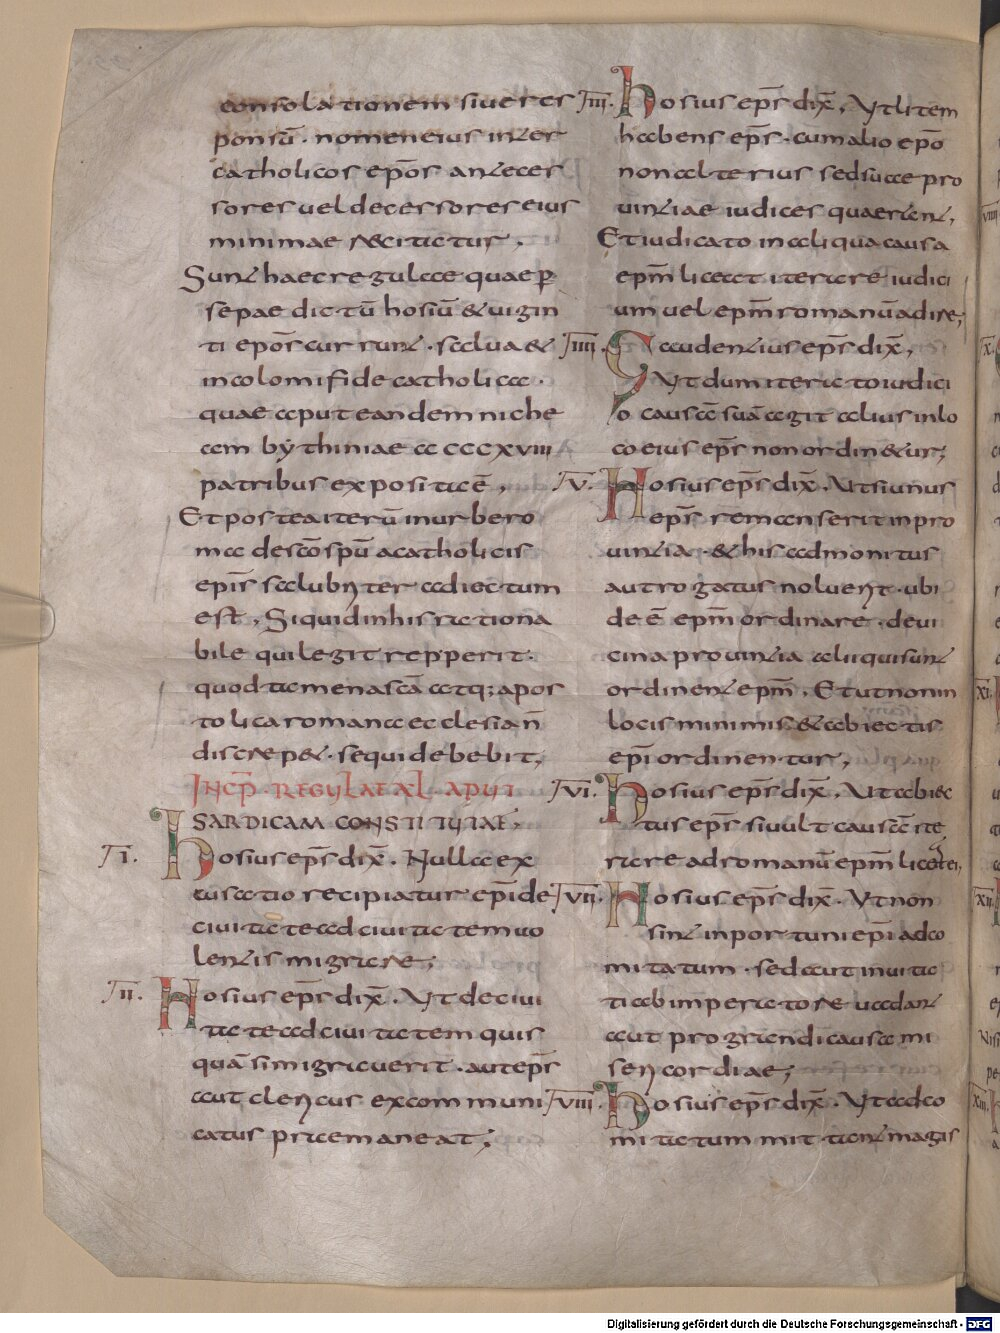 consolationem siue res
ponsū . nomen eius inter
catholicos ep̄os anteces
sores uel decessores eius
minimae recitatur ,
Sunt haec regulae quae ꝑ
sepae dictū hosiū & uigin
ti ep̄os currunt . salua &
incolomi fide catholica .
quae aput eandem niche
am bythiniae a CCCXVIII
patribus exposita ē ,
Et postea iterū in urbe ro
ma descōspū a catholicis
epīs salubriter adiectum
est , Si quid in his rationa
bile qui legit repperit .
quod tamen a scā atq; apos
tolica romana ecclesia ñ
discrep& . sequi debebit ,
INCP̄ . REGULAE XL . APUT
SARDICAM CONSTITUTAE ,
T̄ I . hosius ep̄s dix̄ . Nulla ex
cusatio recipiatur ep̄i de
ciuitate ad ciuitatem uo
lentis migrare ;
T̄ II . Hosius ep̄s dix̄ . Ut de ciui
tate ad ciuitatem quis
quā si migrauerit . aut ep̄s
aut clericus excommuni
catus permaneat ;
T̄ III . hosius ep̄s dix̄ , Ut litem
habens ep̄s . cum alio ep̄o
non alterius sed suae pro
uintiae iudices quaerant ,
Et iudicato in aliqua causa
ep̄m liceat iterare iudici
um uel ep̄m romanū adire ;
T̄ IIII . Gaudentius ep̄s dix̄ ,
Ut dum iterato iudici
o causā suā agit alius in lo
co eius ep̄s non ordin&ur ;
T̄ V . Hosius ep̄s dix̄ . Ut si unus
ep̄s remanserit in pro
uintia . & his admonitus
aut rogatus noluerit . ubi
deē ep̄m ordinare . de ui
cina prouintia alii qui sunt
ordinent ep̄m , Et ut non in
locis minimis & abiectis
ep̄i ordinentur ,
T̄ VI . hosius ep̄s dix̄ , Ut abiec
tus ep̄s si uult causā ite
rare ad romanū ep̄m liceat ei ,
T̄ VII . Hosius ep̄s dix̄ . Ut non
sint inportuni ep̄i ad co
mitatum . sed aut inuita
ti ab imperatore uadant
aut pro grandi causa mi
sericordiae ;
T̄ VIII . hosius ep̄s dix̄ . Ut ad co
mitatum mittant magis
Digitalisierung gefördert durch die Deutsche Forschungsgemeinschaft - DFG